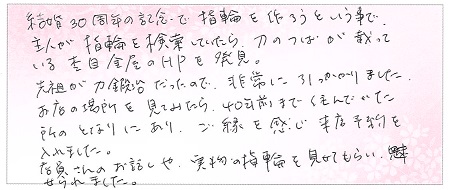 結婚30周年の記念で指輪を作ろうという事で、
主人が指輪を検索していたら、刀のつばが載って
いる杢目金屋のHPを発見。
先祖が刀鍛冶だったので、非常に引っかかりました。
お店の場所を見てみたら、40年前まで住んでいた
所のとなりにあり、ご縁を感じ来店予約を
入れました。
店員さんのお話しや、実物の指輪を見せてもらい、魅
せられました。